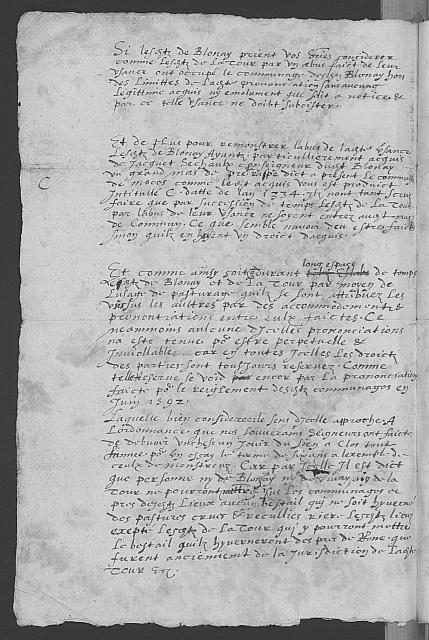 Si lesdt de Blonay prient vos considerer
comme lesdt de La Tour par un abus faict de leur
usance ont occupé le communage desdt Blonay hors
des limittes de ladte prononciation sans aucung
legittime acquis ny emolument que soit a notice &
par ce telle usance ne doibt subsister.
Et de plus pour remonstrer labus de ladte usance
lesdt de Blonay Ayantz particullierement acquis
de Jacquet conseigneur dudt Blonay
un grand mas de dict a present le commun
de mocos comme ledt acquis vous est product
intitullé C. datte de lan 1334 ilz nont sceu
faire que par succession de temps lesdt de La Tour
par labus de leur usance ne soyent entrez audt mas
de Commun. Ce que semble navoir deu estre faict
sinon quilz en heuent un droict dacquis.
C
long espace
Et comme ainsy soit durant de temps
lesdt de Blonay et de La Tour par moyen de
lusage de pasturant quilz se sont attribuez les
ungs sus les aultres par des accommodements &
prononciations entre eulx faictes. Ce
neammoins aulcune dicelles prononciations
na este tenue po estre perpetuelle &
Inviollable car en toutes Icelles les droictz
des parties sont tousjours reservez. Comme
telle reserve se void encor par la prononciation
faicte po le reiglement desdt communages en
Juin 1592.
Laquelle bien considerée le sens dicelle approche A
Lordonnance que nos souverains seigneurs ont faict
de debvoir Jouir du sien a Clos tout
lannee po en essay le terme de six ans a lexemple de
ceulx de monstreux. Car par Icelle Il est dict
que personne ny de Blonay ny de Vivay ny de la
Tour ne pourront mettre sus les communages &
pres desdt Lieux aucun bestail quy ne soit hyverné
des pastures crues & recullies riere lesdt lieux
exepte lesdt de La Tour quy y pourront mettre
le bestail quilz hyverneront des pres de que
furent anciennement de la jurisdiction de ladte
Tour &c.